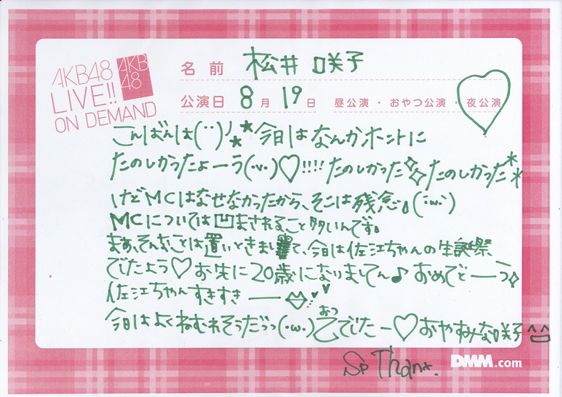 AKB48
LIVE!!
ON DEMAND
AKB
48
名前 松井咲子
公演日 8月19日・昼公演・おやつ公演・夜公演
こんばんは(¨)ノ★今日はなんかホントに
たのしかったよーう(・ω・)♡!!!!たのしかった✧たのしかった*
けどMCはなせなかったから、そこは残念。(・ω・)
MCについては凹まされること多いんです。
まあ、そんなことは置いときまして、今日は佐江ちゃんの生誕祭
でしたよう♡お先に20歳になりましてん♪おめでとーーう✧
佐江ちゃんすきすきー
今日はよくねむれそうだっっ(・ω・)乙でしたー♡おやすみな咲子^^
おつ
DMM.com